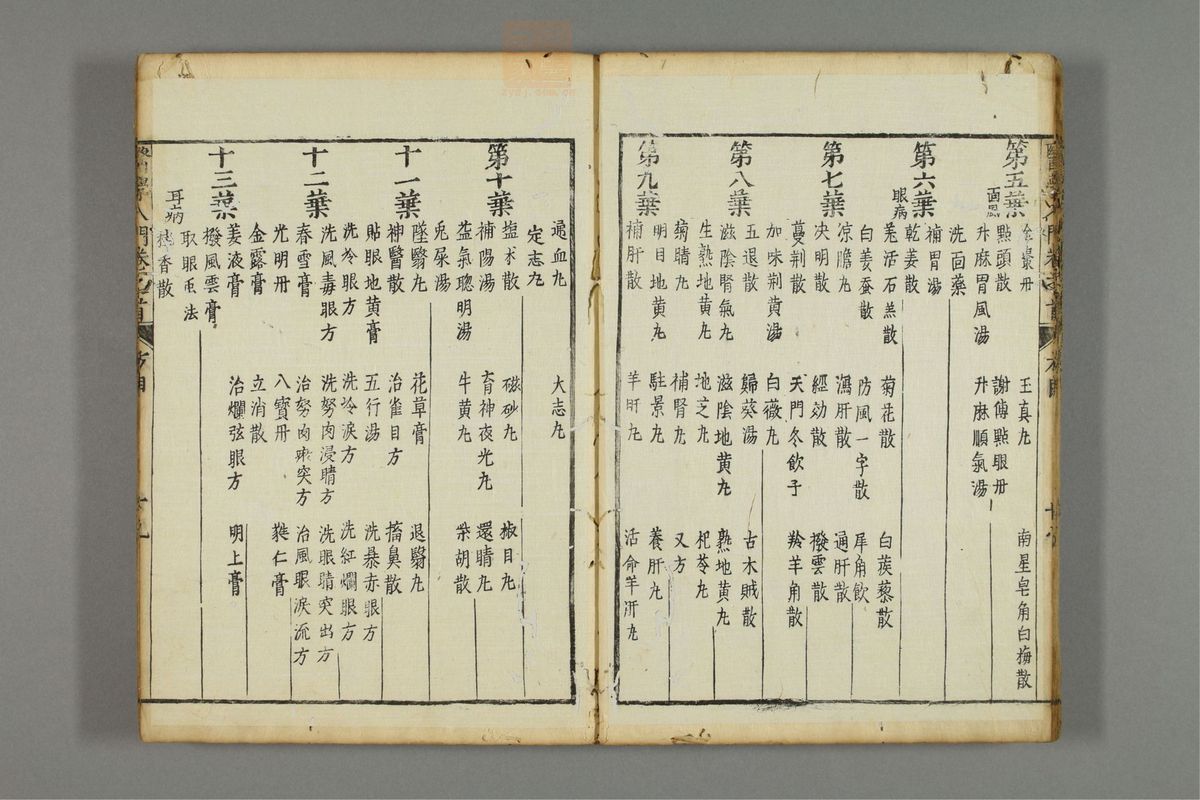 第五葉
玉真丸
南星皂角白梅散
面風
點頭散
謝傅點眼丹
升麻胃風湯
升麻順氣湯
洗面藥
第六葉
補胃湯
眼病
乾姜散
羌活石羔散
菊花散
白蒺藜散
白姜蚕散
防風一字散
犀角飲
第七葉
凉膽丸
瀉肝散
通肝散
决明散
經効散
撥雲散
蔓荆散
天門冬飲子
羚羊角散
加味荆黄湯
白薇丸
第八葉
五退散
歸葵湯
古木賊散
滋陰腎氣丸
滋陰地黄丸
熟地黄丸
生熟地黄丸
地芝丸
杞苓丸
菊睛丸
補腎丸
又方
第九葉
明目地黄丸
駐景丸
養肝丸
補肝散
羊肝丸
活命羊肝丸
通血丸
定志丸
大志丸
第十葉
塩术散
磁砂丸
椒目丸
補陽湯
育神夜光丸
還睛丸
益氣聰明湯
牛黄丸
柴胡散
兎屎湯
十一葉
墜翳丸
花草膏
退翳丸
神醫散
治雀目方
搐鼻散
貼眼地黄膏
五行湯
洗暴赤眼方
洗冷眼方
洗冷淚方
洗紅爛眼方
十二葉
洗風毒眼方
洗努肉浸睛方
洗眼睛突出方
春雪膏
治努肉瘀突方
治風眼淚流方
光明丹
八寶丹
蕤仁膏
金露膏
立消散
姜液膏
治爛弦眼方
明上膏
十三葉
撥風雲膏
取眼虱法
耳病
香散